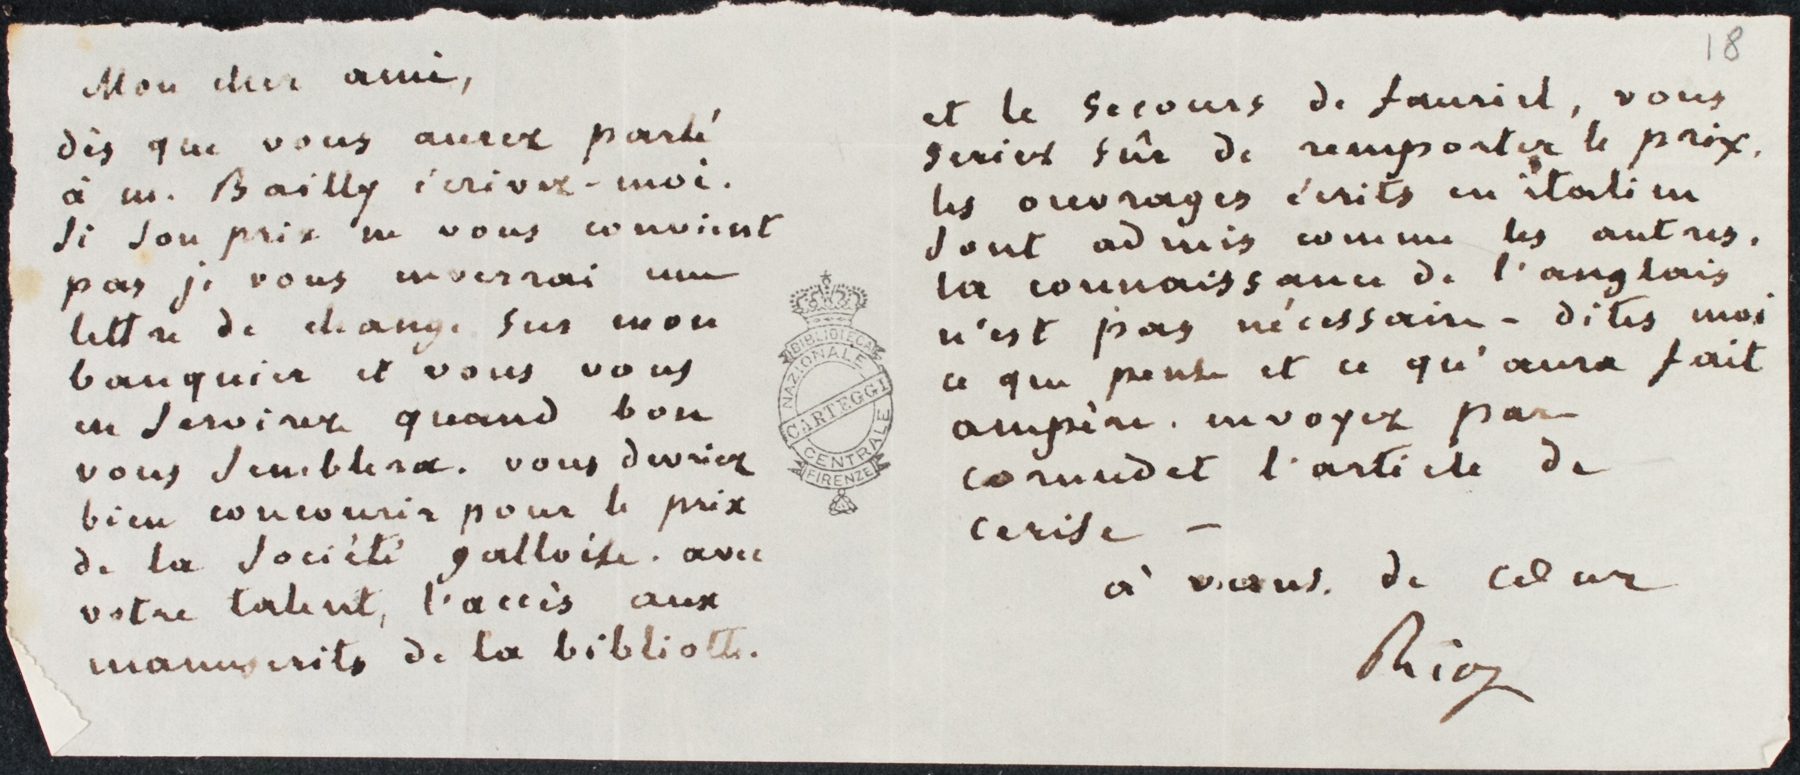 Mon cher ami,
dès que vous aurez parlé
à m. Bailly écrivez-moi.
Si son prix ne vous convient
pas je vous enverrai une
lettre de change sur mon
banquier et vous vous
en servirez quand bon
vous semblera. vous devriez
bien concourir pour le prix
de la société galloise. avec
votre talent, l'accès aux
manuscrits de la biblioth.
18
et le secours de fauriel, vous
seriez sûr de remporter le prix.
les ouvrages écrits en italien
sont admis comme les autres.
la connaissance de l'anglais
n'est pas nécessaire - dites moi
ce que pense et ce qu'aura fait
ampère. envoyez par
cornudet l'article de
cerise -
à vous de cœur
Rio
BIBLIOTECA
NAZIONALE
CARTEGGI
CENTRALE
FIRENZE